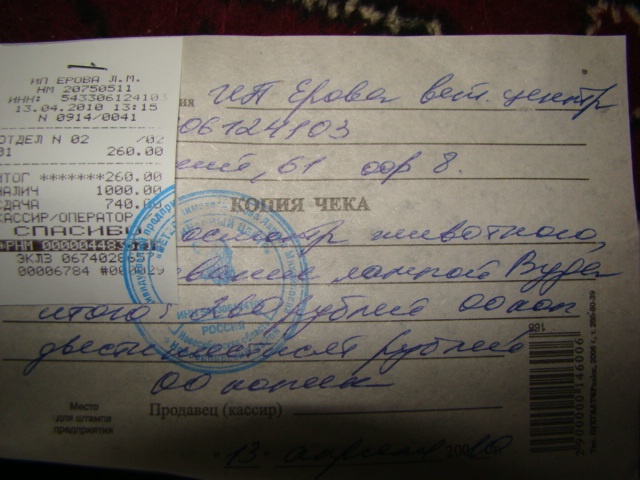 ИП ЕРОВА Л.М.
НМ 20750511
ИНН: 543306124103
13.04.2010 13:15
N 0914/0041
ОТДЕЛ N 02 /02
01 260.00
ИТОГ *******260.00
НАЛИЧ 1000.00
СДАЧА 740.00
КАССИР/ОПЕРАТОР
СПАСИБО
ЭКЛЗ 0674028657
00006784
ИП Ерова вет. центр
06124103
61 оф 8.
КОПИЯ ЧЕКА
осмотр животного,
лампой Вуда
итого: 260 рублей 00 коп
двести шестьдесят рублей
00 копеек
Место
для штампа
предприятия
Продавец (кассир)
13 апреля 2010
РОССИЯ
168
2900000146006